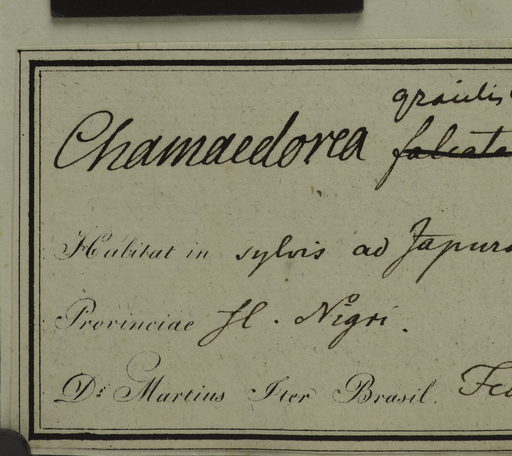 gracilis
Chamaedorea falcata
Habitat in sylvis ad Japura
Provinciae fl. Nigri.
Dr. Martius Iter Brasil.